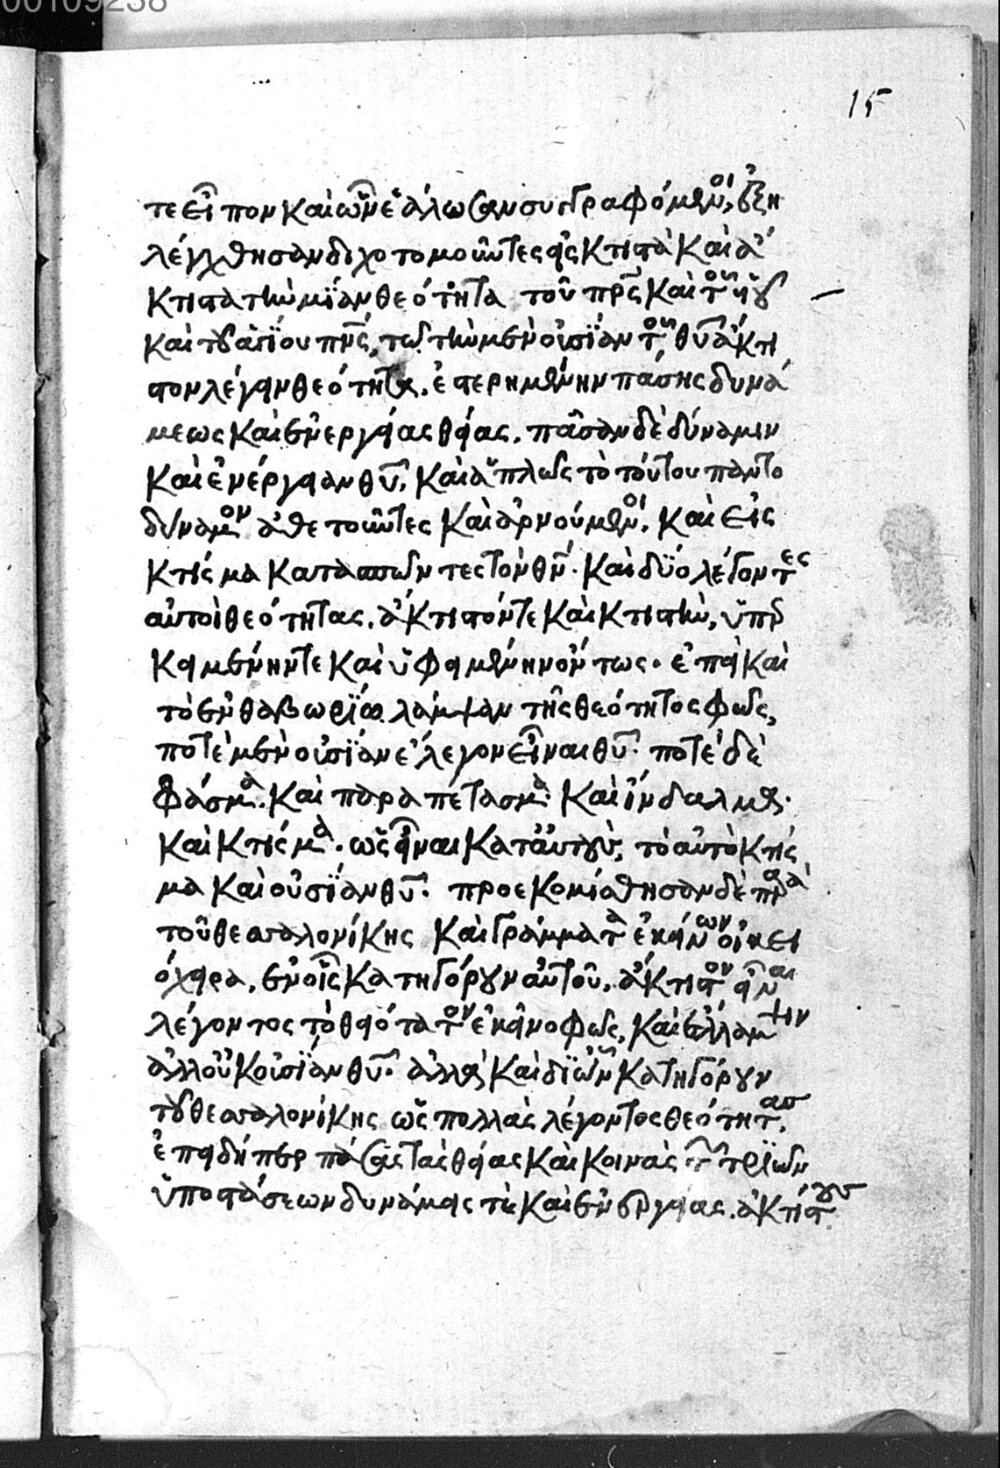 00109238
15
τε εἶπον καὶ ὧν ἑάλωσαν συγγραφόμενοι, ἐξη
λέγχθησαν διχοτομοῦντες εἰς κτιστὰ καὶ ἄ
κτιστα τὴν μίαν θεότητα τοῦ πρς καὶ τοῦ υἱοῦ
καὶ τοῦ ἁγίου πνς, τῷ τὴν μὲν οὐσίαν τοῦ θυ ἄκτι
στον λέγειν θεότητα. ἐστερημένην πάσης δυνά
μεως καὶ ἐνεργείας θείας. πᾶσαν δὲ δύναμιν
καὶ ἐνέργειαν θυ, καὶ ἁπλῶς τὸ τούτου παντο
δύναμον ἀθετοῦντες καὶ ἀρνούμενοι, καὶ εἰς
κτίσμα κατασπῶντες τὸν θν. καὶ δύο λέγοντες
αὐτοὶ θεότητας. ἄκτιστόν τε καὶ κτιστὴν, ὑπερ
κειμένην τε καὶ ὑφειμένην ὄντως. ἐπεὶ καὶ
τὸ ἐν θαβωρίῳ λάμψαν τῆς θεότητος φῶς,
ποτὲ μὲν οὐσίαν ἔλεγον εἶναι θυ. ποτὲ δὲ
φάσμα. καὶ παραπέτασμα. καὶ ἴνδαλμα.
καὶ κτίσμα. ὡς εἶναι κατ αὐτοὺς, τὸ αὐτὸ κτίσ
μα καὶ οὐσίαν θυ. προεκομίσθησαν δὲ παρὰ
τοῦ θεσσαλονίκης καὶ γράμματα ἐκείνων οἰκει
όχειρα, ἐν οἷς κατηγόρουν αὐτοῦ, ἄκτιστον εἶναι
λέγοντος τὸ θειότατον ἐκεῖνο φῶς, καὶ ἔλλαμψιν
ἀλλ οὐκ οὐσίαν θυ. ἀλλὰ καὶ δι ὧν κατηγόρουν
τοῦ θεσσαλονίκης ὡς πολλὰς λέγοντος θεότητας.
ἐπειδήπερ πάσας τὰς θείας καὶ κοινὰς τῶν τριῶν
ὑποστάσεων δυνάμεις τὲ καὶ ἐνεργείας. ἀκτίστους